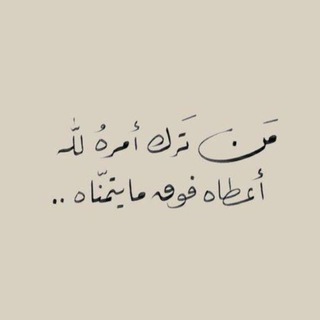 مَن تَرك أمرهُ للّٰه
أعطاه فوق مايتمنّاه ..